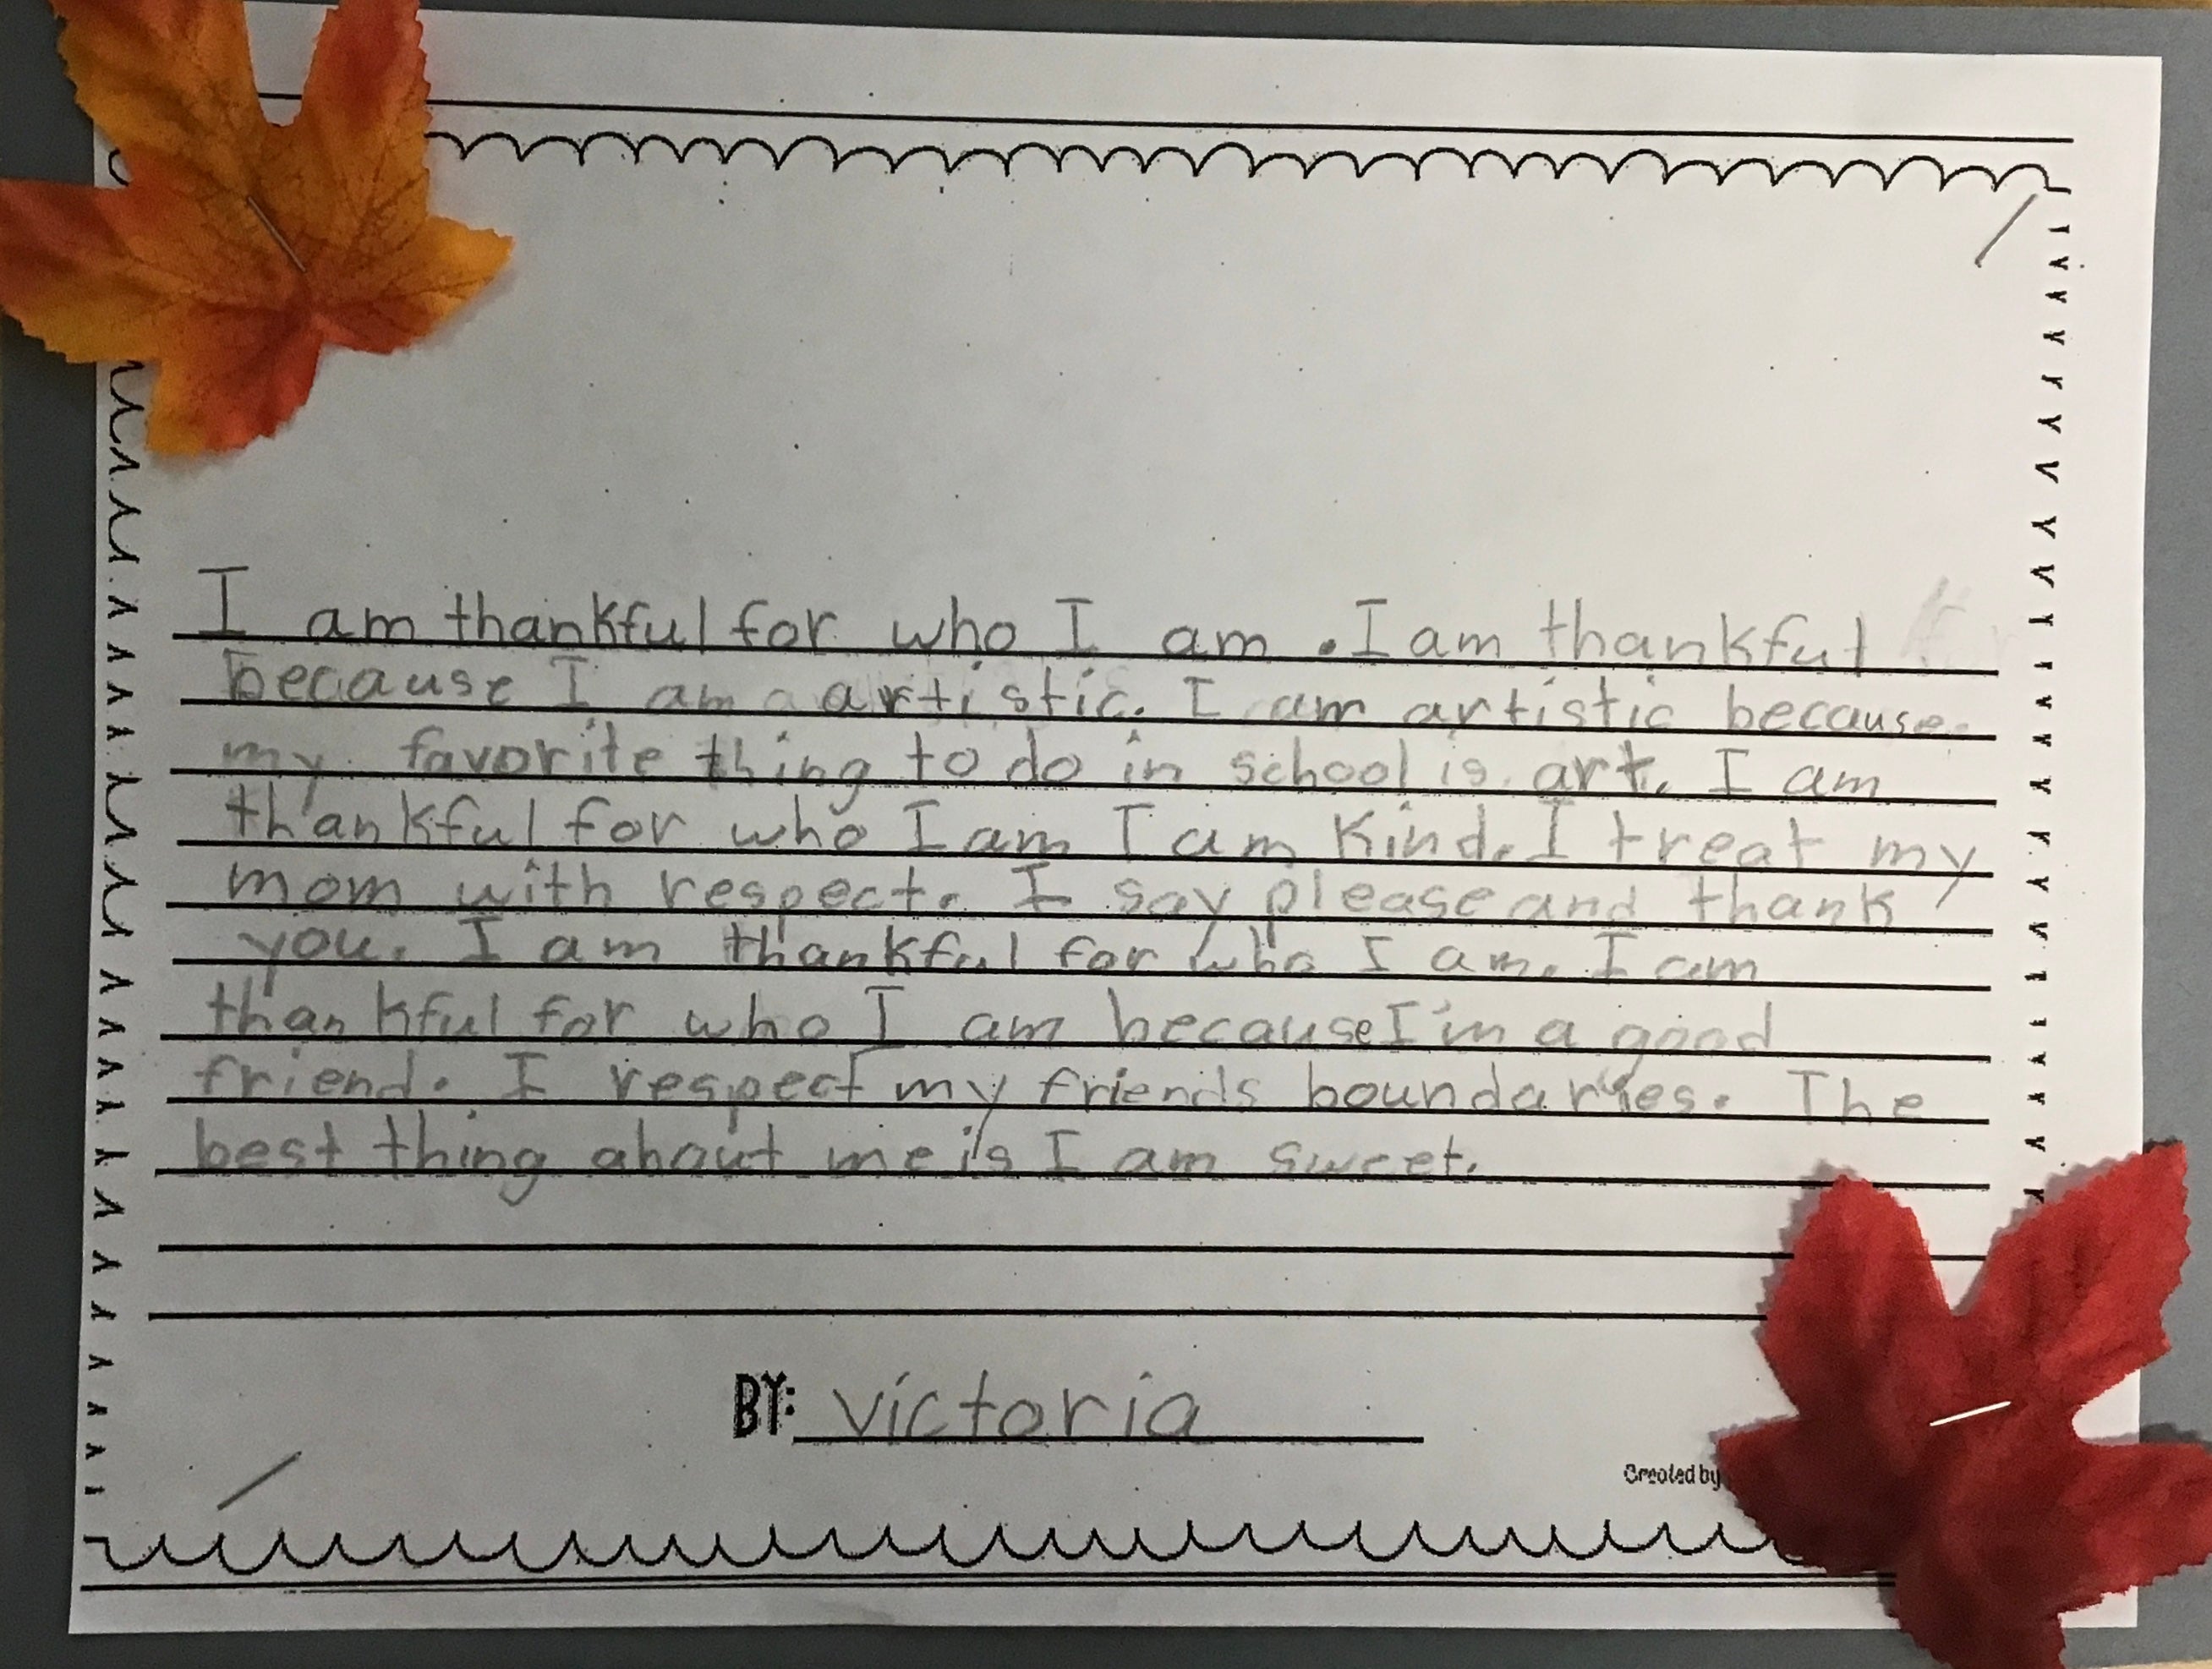 I am thankful for who I am . I am thankful
because I am artistic. I am artistic because
my favorite thing to do in school is art. I am
thankful for who I am I am kind. I treat my
mom with respect. I say please and thank
you. I am thankful for who I am. I am
thankful for who I am because I'm a good
friend. I respect my friends boundaries. The
best thing about me is I am sweet.
BY: victoria
Created by